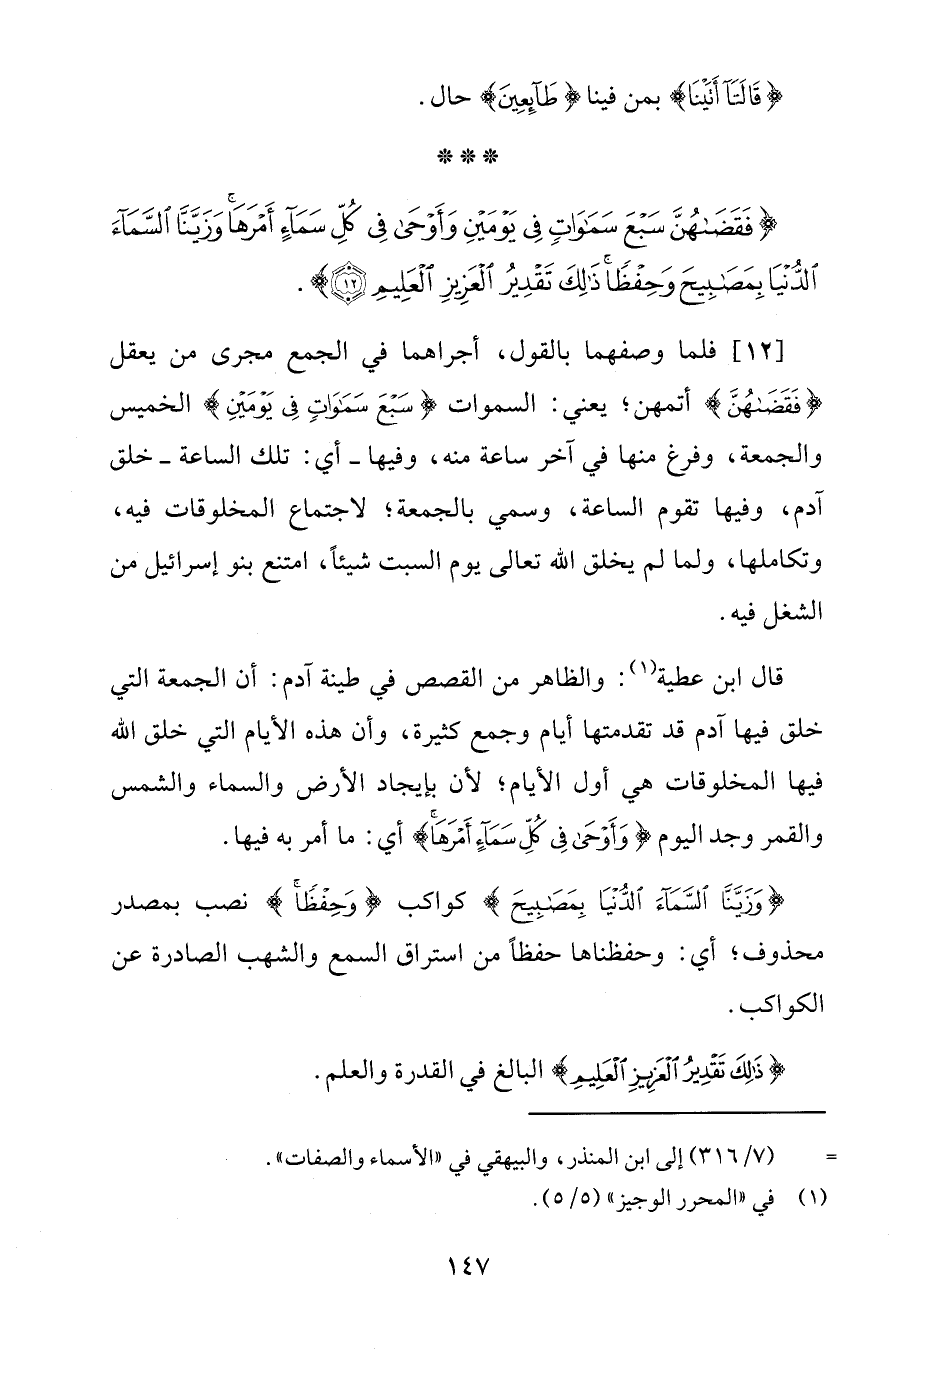 ﴿قَالَتَآ أَتَيۡنَا﴾ بمن فينا ﴿طَآئِعِينَ﴾ حال.
* * *
﴿فَقَضَىٰهُنَّ سَبۡعَ سَمَٰوَاتٖ فِي يَوۡمَيۡنِ وَأَوۡحَىٰ فِي كُلِّ سَمَآءٍ أَمۡرَهَاۚ وَزَيَّنَّا ٱلسَّمَآءَ
ٱلدُّنۡيَا بِمَصَٰبِيحَ وَحِفۡظٗاۚ ذَٰلِكَ تَقۡدِيرُ ٱلۡعَزِيزِ ٱلۡعَلِيمِ ١٢﴾.
[١٢] فلما وصفهما بالقول، أجراهما في الجمع مجرى من يعقل
﴿فَقَضَىٰهُنَّ﴾ أتمهن؛ يعني: السموات ﴿سَبۡعَ سَمَٰوَاتٖ فِي يَوۡمَيۡنِ﴾ الخميس
والجمعة، وفرغ منها في آخر ساعة منه، وفيها ـ أي: تلك الساعة ـ خلق
آدم، وفيها تقوم الساعة، وسمي بالجمعة؛ لاجتماع المخلوقات فيه،
وتكاملها، ولما لم يخلق الله تعالى يوم السبت شيئاً، امتنع بنو إسرائيل من
الشغل فيه.
قال ابن عطية(١): والظاهر من القصص في طينة آدم: أن الجمعة التي
خلق فيها آدم قد تقدمتها أيام وجمع كثيرة، وأن هذه الأيام التي خلق الله
فيها المخلوقات هي أول الأيام؛ لأن بإيجاد الأرض والسماء والشمس
والقمر وجد اليوم ﴿وَأَوۡحَىٰ فِي كُلِّ سَمَآءٍ أَمۡرَهَاۚ﴾ أي: ما أمر به فيها.
﴿وَزَيَّنَّا ٱلسَّمَآءَ ٱلدُّنۡيَا بِمَصَٰبِيحَ﴾ كواكب ﴿وَحِفۡظٗاۚ﴾ نصب بمصدر
محذوف؛ أي: وحفظناها حفظاً من استراق السمع والشهب الصادرة عن
الكواكب.
﴿ذَٰلِكَ تَقۡدِيرُ ٱلۡعَزِيزِ ٱلۡعَلِيمِ﴾ البالغ في القدرة والعلم.
= (٧/ ٣١٦) إلى ابن المنذر، والبيهقي في «الأسماء والصفات».
(١) في «المحرر الوجيز» (٥/ ٥).
١٤٧